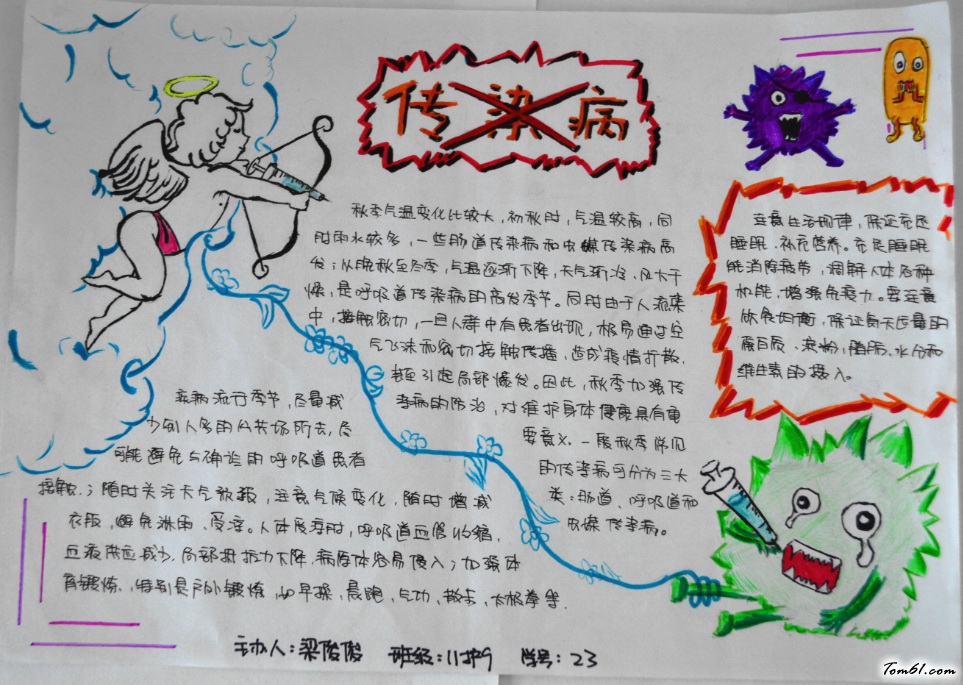 传染病
秋季气温变化比较大，初秋时，气温较高，同
时雨水较多，一些肠道传染病和虫媒传染病高
发；从晚秋至冬季，气温逐渐下降，天气渐冷，风大干
燥，是呼吸道传染病的高发季节。同时由于人流集
中，接触密切，一旦人群中有患者出现，极易通过空
气飞沫和密切接触传播，造成疫情扩散，
甚至引起局部爆发。因此，秋季加强传
染病的防治，对维护身体健康具有重
要意义。一般秋季常见
的传染病可分为三大
类：肠道、呼吸道和
虫媒传染病。
注意生活规律，保证充足
睡眠，补充营养。充足睡眠
能消除疲劳，调解人体各种
机能，增强免疫力。要注意
饮食均衡，保证每天适量的
蛋白质、淀粉、脂肪、水分和
维生素的摄入。
疾病流行季节，尽量减
少到人多的公共场所去，尽
可能避免与确诊的呼吸道患者
接触；随时关注天气预报，注意气候变化，随时增减
衣服，避免淋雨、受凉。人体受凉时，呼吸道血管收缩，
血液供应减少，局部抵抗力下降，病原体容易侵入；加强体
育锻炼，特别是户外锻炼，如早操，晨跑，气功，散步，太极拳等．
主办人：梁俊俊 班级：11护9 学号：23
Tom61.com